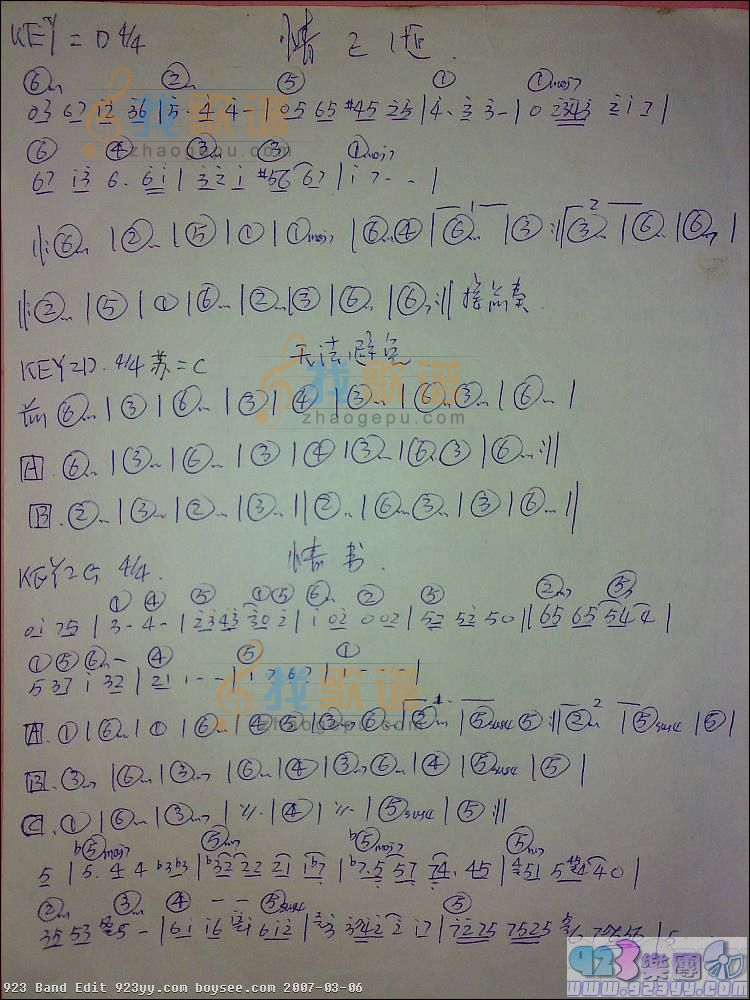 KEY=D 4/4 情之迷
⑥m ②m ⑤ ① ①maj7
03 67 12 36 | 5· 4 4- | 05 65 #45 23 | 4· 3 3- | 0 2343 2 1 7 |
⑥ ④ ③m ③ ①maj7
67 13 6· 61 | 3 2 1 #56 67 | 1 7 - - |
||: ⑥m | ②m | ⑤ | ① | ①maj7 | ⑥m ④ | 1 ⑥m | ③ :|| 2 ③m | ⑥m | ⑥m7 |
||: ②m | ⑤ | ① | ⑥m | ②m | ③ | ⑥m | ⑥7 :||
KEY=D 4/4 苏=C 无法避免
前 ⑥m | ③ | ⑥m | ③ | ④ | ③m | ⑥m ③m | ⑥m |
A. ⑥m | ③m | ⑥m | ③ | ④ | ③m | ⑥m ③ | ⑥m :||
B. ②m | ③m | ②m | ③m || ②m | ⑥m ③m | ③ | ⑥m ||
KEY=G 4/4. 情书
① ④ ⑤ ① ⑤ ⑥m ② ⑤ ②m7 ⑤
01 75 | 3- 4- | 2343 30 2 | 1 02 002 | 52 52 50 || 65 65 54 4 |
① ⑤ ⑥m - ④ ⑤ ①
5 37 1 32 | 21 1 - - | 1 7 6 7 | 1 - - - |
A. ① | ⑥m | ① | ⑥m | ④ ⑤ | ③m7 ⑥m | 1 ②m | ⑤sus4 ⑤ :|| 2 ②m | ⑤sus4 | ⑤ |
B. ③m7 | ⑥m | ③m7 | ⑥m | ④ | ③m7 ⑥m | ④ | ⑤sus4 | ⑤ |
C. ① | ⑥m | ③m7 | 〃 | ④ | 〃 | ⑤sus4 | ⑤ :||
b⑤maj7 ⑤m7 b⑤maj7 ⑤m7
5 | 5· 4 4 b3b3 | b32 22 21 1b7 | b7·5 57 74· 45 |
②m ③m ④ - - ⑤sus4 ⑤
35 53
我歌谱
zhaogepu.com
我歌谱
zhaogepu.com
我歌谱
zhaogepu.com
923樂團
www.923yy.com
923 Band Edit 923yy.com boysee.com 2007-03-06